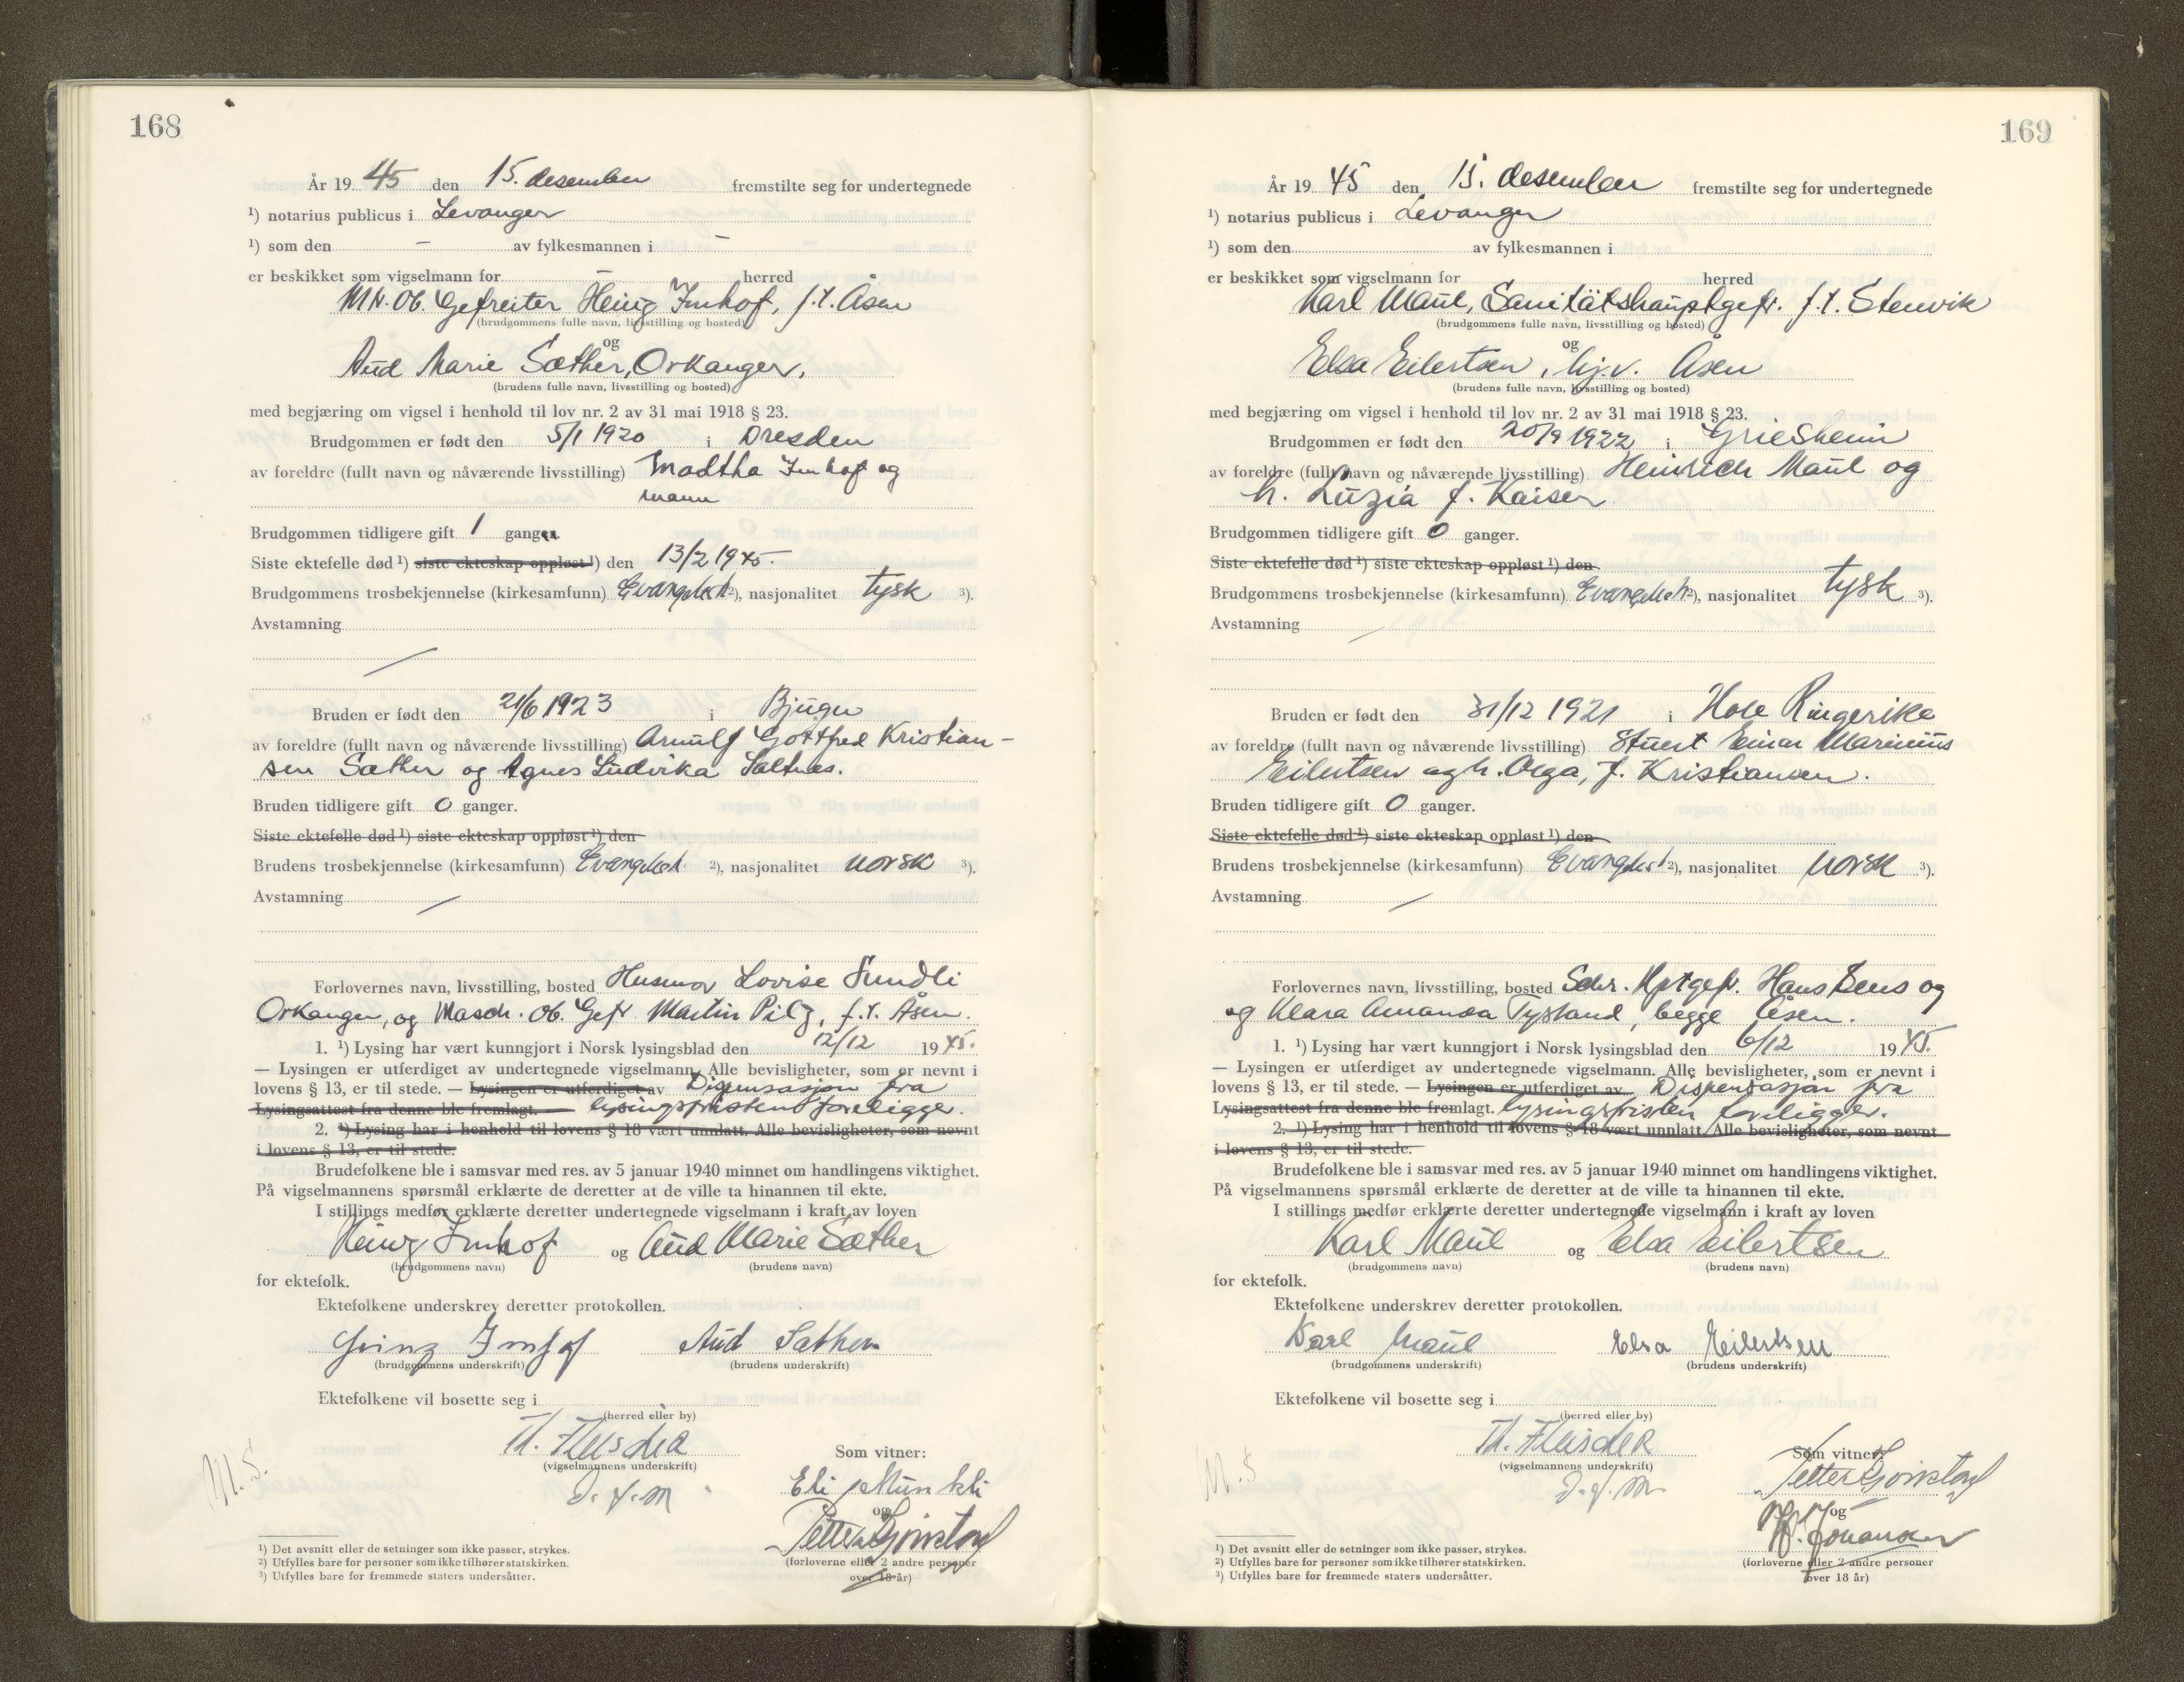 168
År 19 45 den 15. desember fremstilte seg for undertegnede
¹) notarius publicus i Levanger
¹) som den – av fylkesmannen i –
er beskikket som vigselmann for – herred
Ob. Gefreiter Heinz Imhof, f.t. Åsen
(brudgommens fulle navn, livsstilling og bosted)
og
Aud Marie Sæther, Orkanger,
(brudens fulle navn, livsstilling og bosted)
med begjæring om vigsel i henhold til lov nr. 2 av 31 mai 1918 § 23.
Brudgommen er født den 5/1 1920 i Dresden
av foreldre (fullt navn og nåværende livsstilling) Imhof og
mann
Brudgommen tidligere gift 1 ganger.
Siste ektefelle død ¹) siste ekteskap oppløst ¹) den 13/2 1945.
Brudgommens trosbekjennelse (kirkesamfunn) Evangelisk ²), nasjonalitet tysk ³).
Avstamning
Bruden er født den 21/6 1923 i Bjugn
av foreldre (fullt navn og nåværende livsstilling) Arnulf Gottfred Kristian-
sen Sæther og Agnes Ludvika Saltnes.
Bruden tidligere gift 0 ganger.
Siste ektefelle død ¹) siste ekteskap oppløst ¹) den
Brudens trosbekjennelse (kirkesamfunn) Evangelisk ²), nasjonalitet norsk ³).
Avstamning
Forlovernes navn, livsstilling, bosted Husmor Lovise Sundli
Orkanger, og Masch. Ob. Gefr Martin Pilz, f.t. Åsen.
1. ¹) Lysing har vært kunngjort i Norsk lysingsblad den 12/12 1945.
— Lysingen er utferdiget av undertegnede vigselmann. Alle bevisligheter, som er nevnt i
lovens § 13, er til stede. — Lysingen er utferdiget av Dispensasjon fra
Lysingsattest fra denne ble fremlagt. — lysingsfristen foreligger.
2. ¹) Lysing har i henhold til lovens § 18 vært unnlatt. Alle bevisligheter, som nevnt
i lovens § 13, er til stede.
Brudefolkene ble i samsvar med res. av 5 januar 1940 minnet om handlingens viktighet.
På vigselmannens spørsmål erklærte de deretter at de ville ta hinannen til ekte.
I stillings medfør erklærte deretter undertegnede vigselmann i kraft av loven
Heinz Imhof og Aud Marie Sæther
(brudgommens navn) (brudens navn)
for ektefolk.
Ektefolkene underskrev deretter protokollen.
Heinz Imhof Aud Sæther
(brudgommens underskrift) (brudens underskrift)
Ektefolkene vil bosette seg i
(herred eller by)
Th. Fleischer
(vigselmannens underskrift)
d.f.m
M.S.
Som vitner:
Eli
og
Petter
(forloverne eller 2 andre personer
over 18 år)
¹) Det avsnitt eller de setninger som ikke passer, strykes.
²) Utfylles bare for personer som ikke tilhører statskirken.
³) Utfylles bare for fremmede staters undersåtter.
169
År 19 45 den 15. desember fremstilte seg for undertegnede
¹) notarius publicus i Levanger
¹) som den av fylkesmannen i
er beskikket som vigselmann for herred
Karl Maul, Sanitätshauptgefr. f.t. Stenvik
(brudgommens fulle navn, livsstilling og bosted)
og
Elsa Eilertsen, hj.v. Åsen
(brudens fulle navn, livsstilling og bosted)
med begjæring om vigsel i henhold til lov nr. 2 av 31 mai 1918 § 23.
Brudgommen er født den 20/9 1922 i Griesheim
av foreldre (fullt navn og nåværende livsstilling) Heinrich Maul og
h. Luzia f. Kaiser
Brudgommen tidligere gift 0 ganger.
Siste ektefelle død ¹) siste ekteskap oppløst ¹) den
Brudgommens trosbekjennelse (kirkesamfunn) Evangelisk ²), nasjonalitet tysk ³).
Avstamning
Bruden er født den 31/12 1921 i Hole Ringerike
av foreldre (fullt navn og nåværende livsstilling) Einar Marinius
Eilertsen og h. Olga, f. Kristiansen.
Bruden tidligere gift 0 ganger.
Siste ektefelle død ¹) siste ekteskap oppløst ¹) den
Brudens trosbekjennelse (kirkesamfunn) Evangelisk ²), nasjonalitet norsk ³).
Avstamning
Forlovernes navn, livsstilling, bosted Schr. Hptgefr. Hans og
og Klara Amanda Tystand, begge Åsen.
1. ¹) Lysing har vært kunngjort i Norsk lysingsblad den 6/12 1945.
— Lysingen er utferdiget av undertegnede vigselmann. Alle bevisligheter, som er nevnt i
lovens § 13, er til stede. — Lysingen er utferdiget av Dispensasjon fra
Lysingsattest fra denne ble fremlagt. lysingsfristen foreligger.
2. ¹) Lysing har i henhold til lovens § 18 vært unnlatt. Alle bevisligheter, som nevnt
i lovens § 13, er til stede.
Brudefolkene ble i samsvar med res. av 5 januar 1940 minnet om handlingens viktighet.
På vigselmannens spørsmål erklærte de deretter at de ville ta hinannen til ekte.
I stillings medfør erklærte deretter undertegnede vigselmann i kraft av loven
Karl Maul og Elsa Eilertsen
(brudgommens navn) (brudens navn)
for ektefolk.
Ektefolkene underskrev deretter protokollen.
Karl Maul Elsa Eilertsen
(brudgommens underskrift) (brudens underskrift)
Ektefolkene vil bosette seg i
(herred eller by)
Th. Fleischer
(vigselmannens underskrift)
d.f.m.
M.S
Som vitner:
Petter
og
Johansen
(forloverne eller 2 andre personer
over 18 år)
¹) Det avsnitt eller de setninger som ikke passer, strykes.
²) Utfylles bare for personer som ikke tilhører statskirken.
³) Utfylles bare for fremmede staters undersåtter.